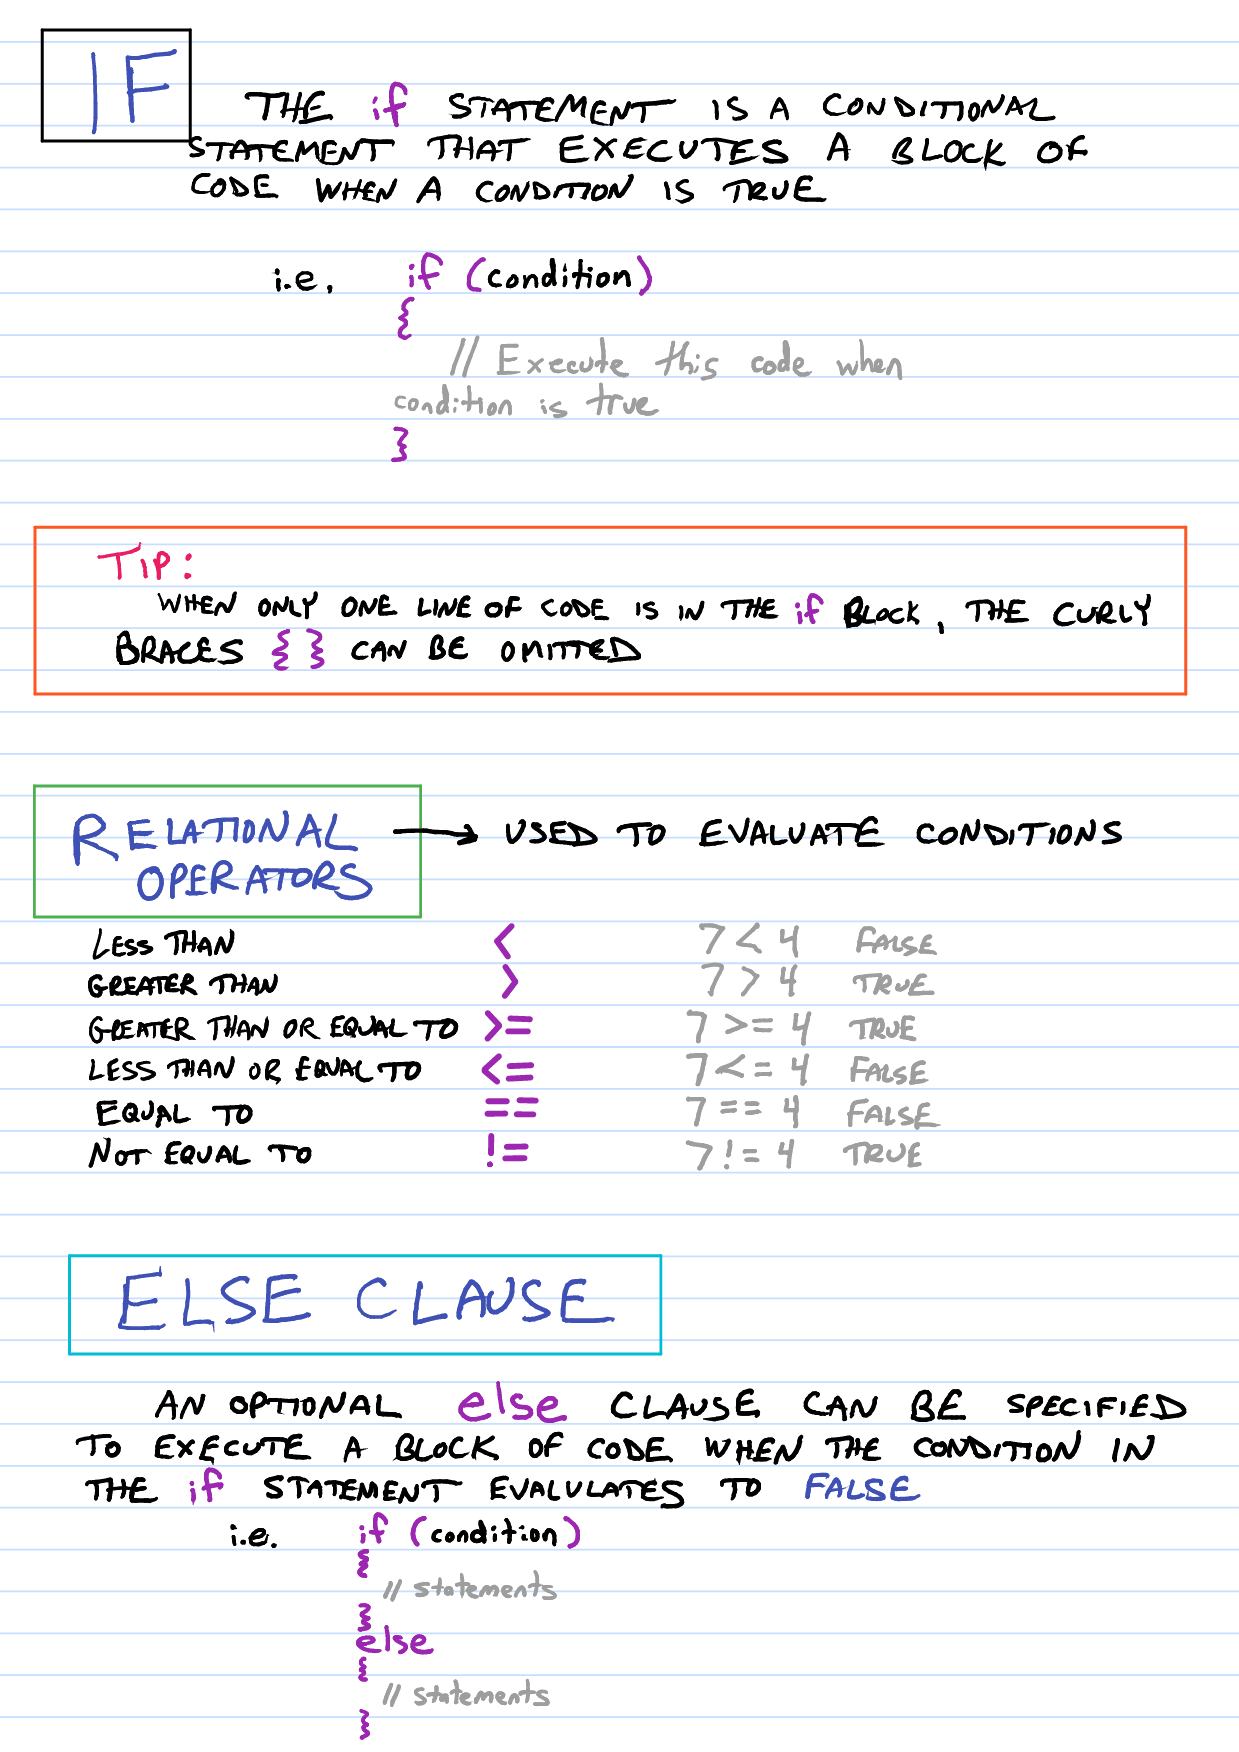 IF
THE if STATEMENT IS A CONDITIONAL
STATEMENT THAT EXECUTES A BLOCK OF
CODE WHEN A CONDITION IS TRUE
i.e. if (condition)
{
// Execute this code when
condition is true
}
TIP:
WHEN ONLY ONE LINE OF CODE IS IN THE if BLOCK, THE CURLY
BRACES { } CAN BE OMITTED
RELATIONAL
OPERATORS
→ USED TO EVALUATE CONDITIONS
LESS THAN < 7 < 4 FALSE
GREATER THAN > 7 > 4 TRUE
GREATER THAN OR EQUAL TO >= 7 >= 4 TRUE
LESS THAN OR EQUAL TO <= 7 <= 4 FALSE
EQUAL TO == 7 == 4 FALSE
NOT EQUAL TO != 7 != 4 TRUE
ELSE CLAUSE
AN OPTIONAL else CLAUSE CAN BE SPECIFIED
TO EXECUTE A BLOCK OF CODE WHEN THE CONDITION IN
THE if STATEMENT EVALULATES TO FALSE
i.e. if (condition)
{
// statements
}
else
{
// statements
}